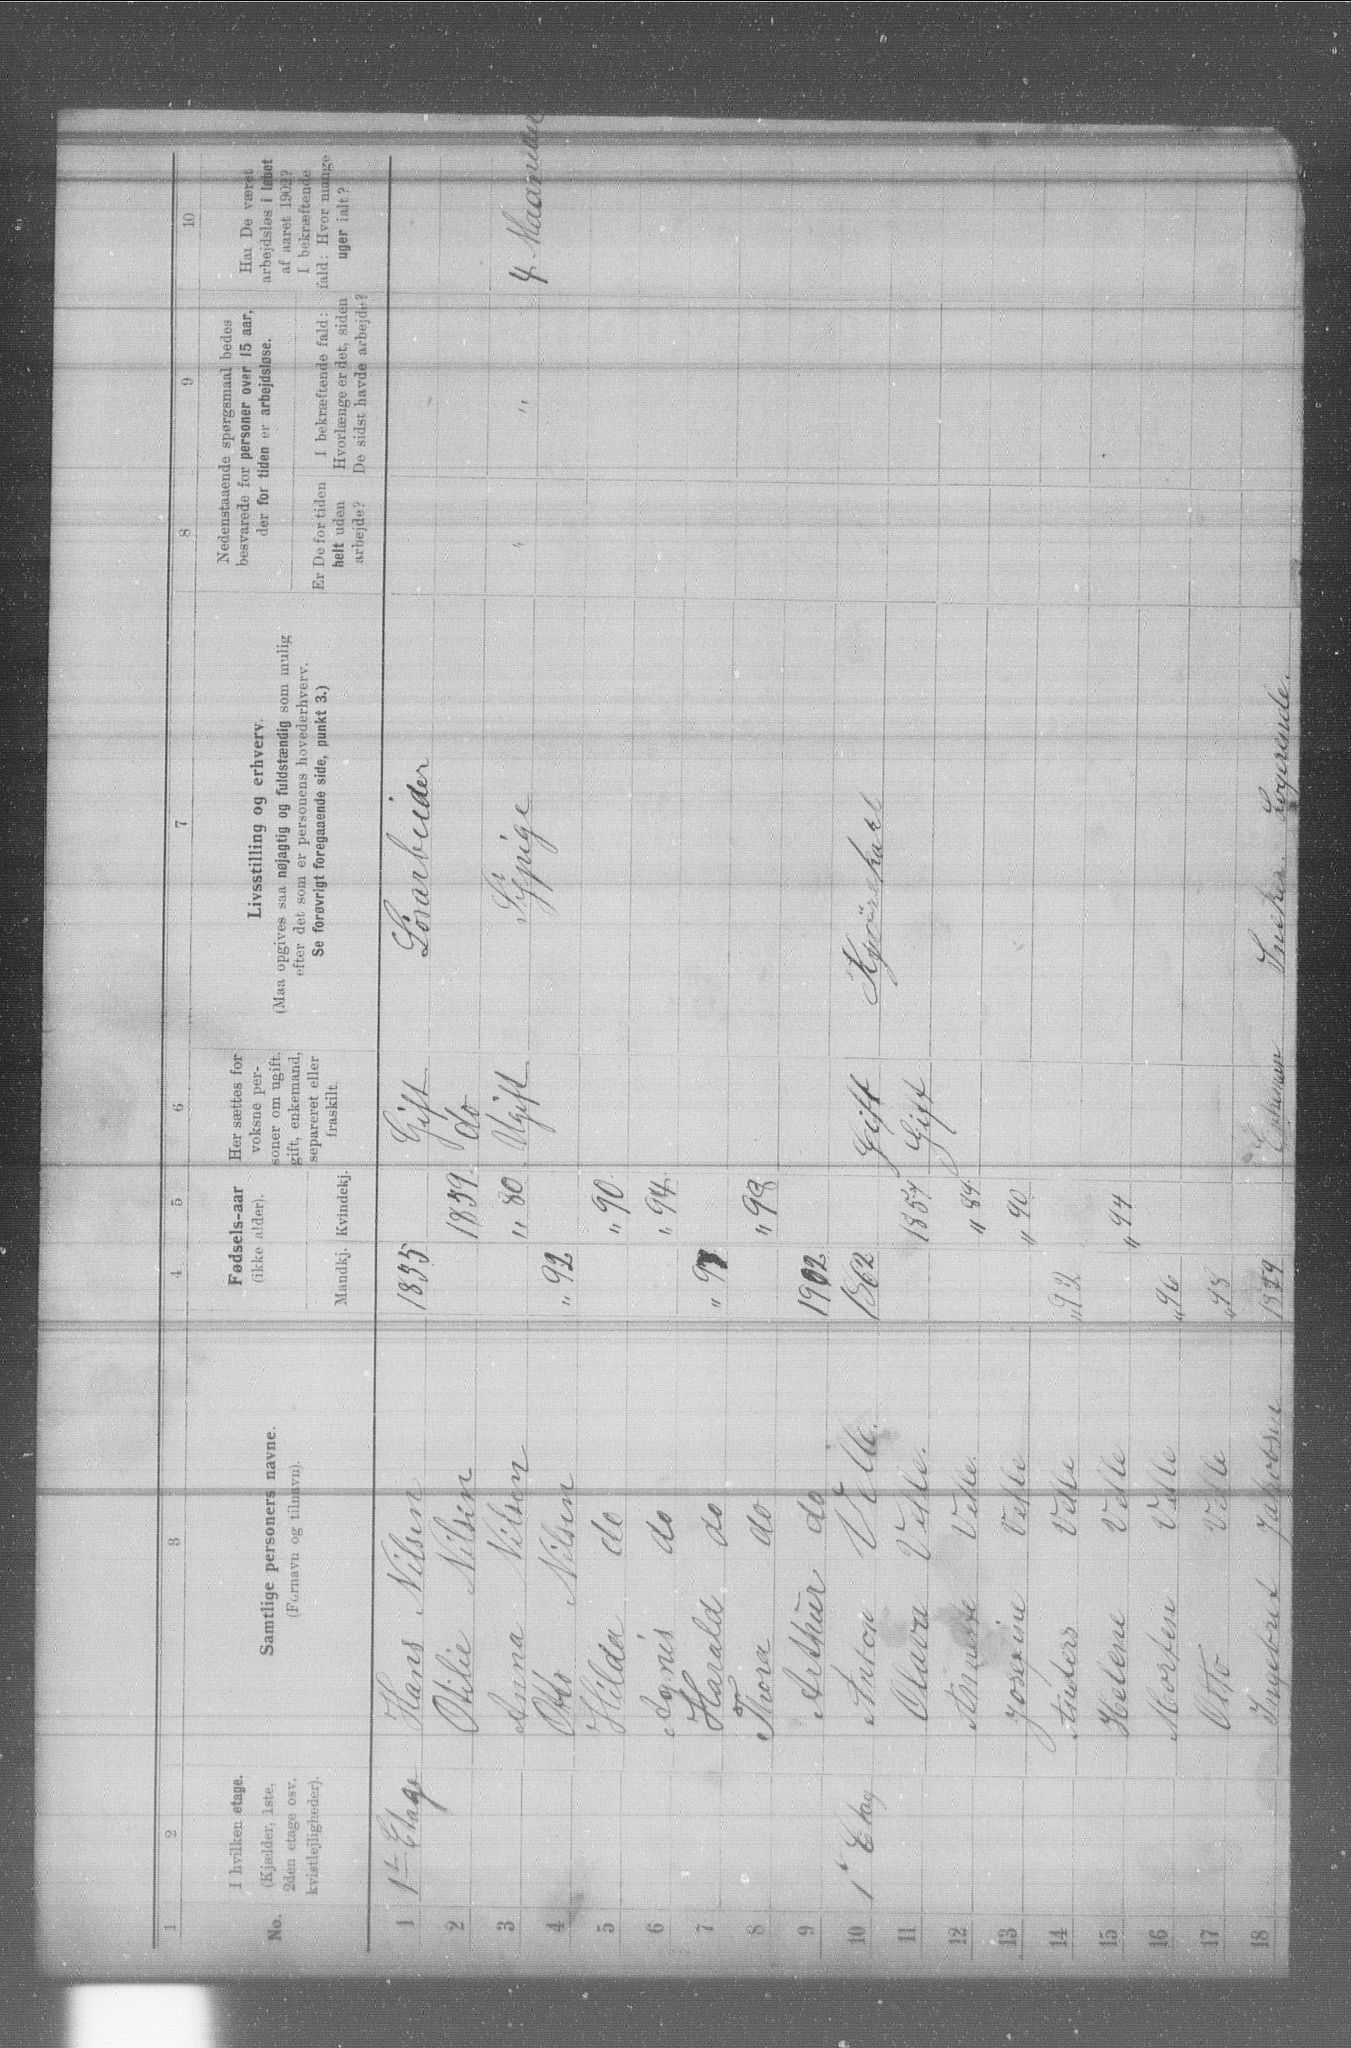 1 2 3 4 5 6 7 8 9 10
No.
I hvilken etage.
(Kjælder, 1ste,
2den etage osv.
kvistlejligheder).
Samtlige personers navne.
(Fornavn og tilnavn).
Fødsels-aar
(ikke alder).
Mandkj. Kvindekj.
Her sættes for
voksne per-
soner om ugift,
gift, enkemand,
separeret eller
fraskilt.
Livsstilling og erhverv.
(Maa opgives saa nøjagtig og fuldstændig som mulig
efter det som er personens hovederhverv.
Se forøvrigt foregaaende side, punkt 3.)
Nedenstaaende spørgsmaal bedes
besvarede for personer over 15 aar,
der for tiden er arbejdsløse.
Er De for tiden
helt uden
arbejde?
I bekræftende fald:
Hvorlænge er det, siden
De sidst havde arbejde?
Har De været
arbejdsløs i løbet
af aaret 1902?
I bekræftende
fald: Hvor mange
uger ialt?
1 1ste Etage Hans Nilsen 1835 Gift Løsarbeider
2 Otilie Nilsen 1859 do
3 Anna Nilsen " 80 Ugift Sypige " " 4 Maaneder
4 Otto Nilsen " 92
5 Hilda do " 90
6 Agnis do " 94
7 Harald do
8 Thora do " 98
9 Arthur do 1902
10 1 Etag Anton Velle. 1862 Gift Kjørekarl
11 Olava Velle. 1857 Gift
12 Velle. " 84
13 Josefine Velle " 90
14 Anders Velle " 92
15 Helene Velle " 94
16 Morten Velle " 96
17 Otto Velle " 98
18 Ingebret Jakobsen 1829 Snekker Logerende.